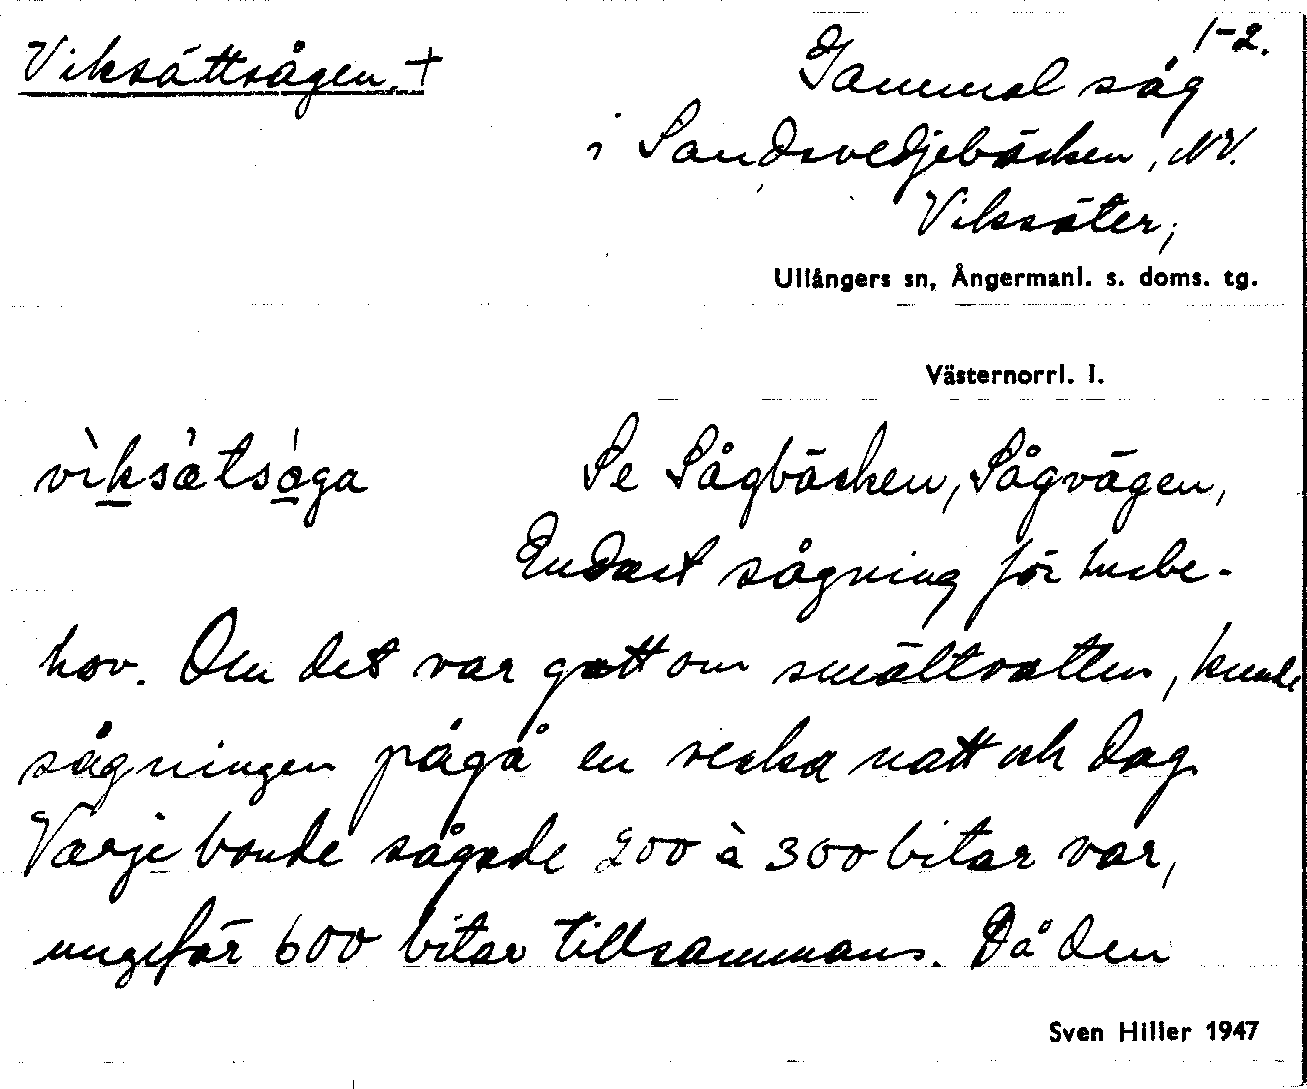 1-2.
Viksättsågen. +
Gammal såg
i Sandsvedjebäcken, NV.
Viksäter;
Ullångers sn, Ångermanl. s. doms. tg.
Västernorrl. l.
vìksàtsága
Se Sågbäcken, Sågvägen,
Endast sågning för husbe-
hov. Om det var gott om smältvatten, kunde
sågningen pågå en vecka natt och dag.
Varje bonde sågade 200 à 300 bitar var,
ungefär 600 bitar tillsammans. Då den
Sven Hiller 1947